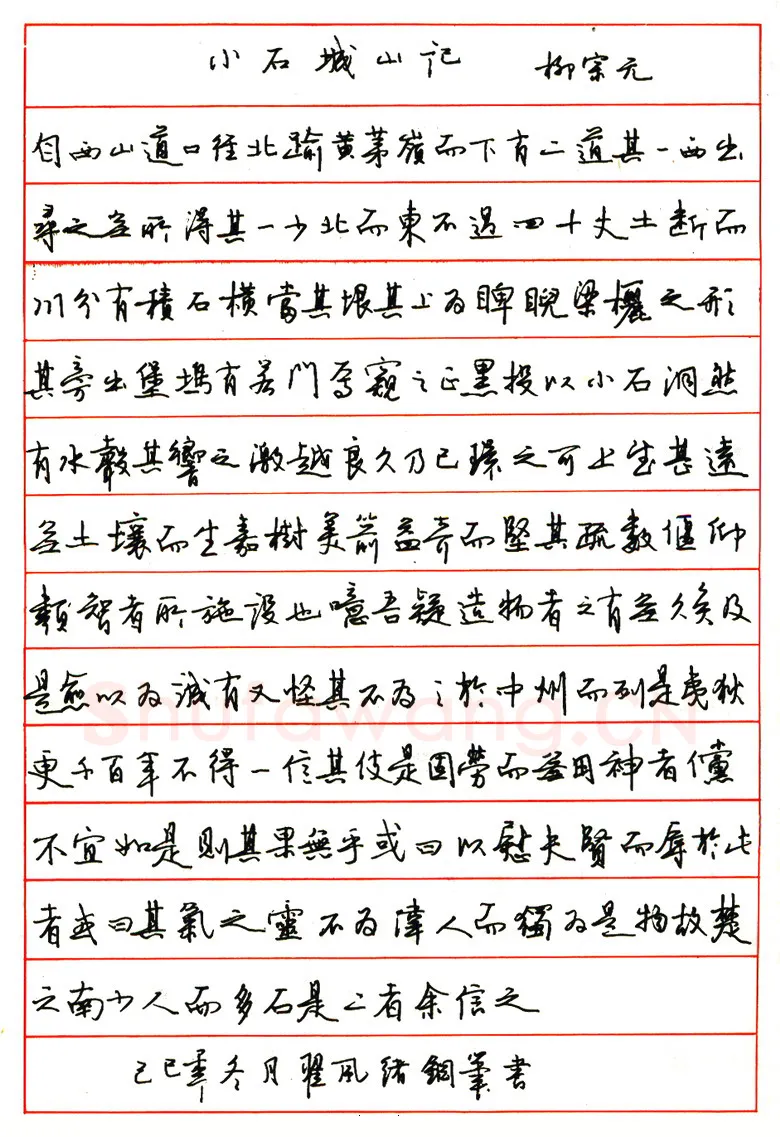 小石城山記 柳宗元
自西山道口徑北踰黄茅嶺而下有二道其一西出
尋之無所得其一少北而東不過四十丈土断而
川分有積石横當其垠其上為睥睨梁欐之形
其旁出堡塢有若門焉窺之正黑投以小石洞然
有水聲其響之激越良久乃已環之可上望甚遠
無土壤而生嘉樹美箭益奇而堅其疏數偃仰
類智者所施设也噫吾疑造物者之有無久矣及
是愈以為誠有又怪其不為之於中州而列是夷狄
更千百年不得一信其伎是固勞而無用神者儻
不宜如是則其果無乎或曰以慰夫賢而辱於此
者或曰其氣之靈不為偉人而獨為是物故楚
之南少人而多石是二者余信之
己巳年冬月瞿風绪鋼筆書
Shufawang.CN